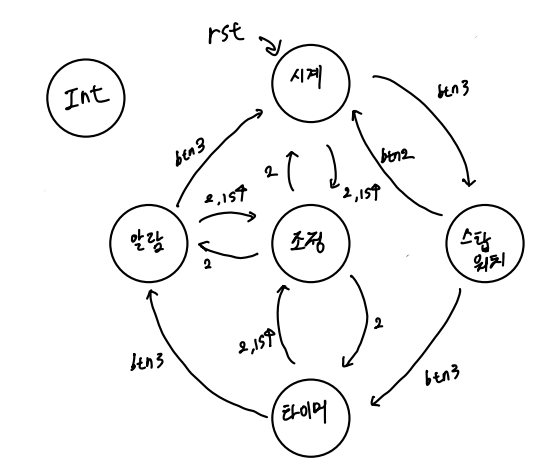 rst
시계
Int
btn3
btn3
btn2
2
2,1s↑
2,1s↑
알람
조정
스탑
워치
2
2,1s↑
2
btn3
btn3
타이머